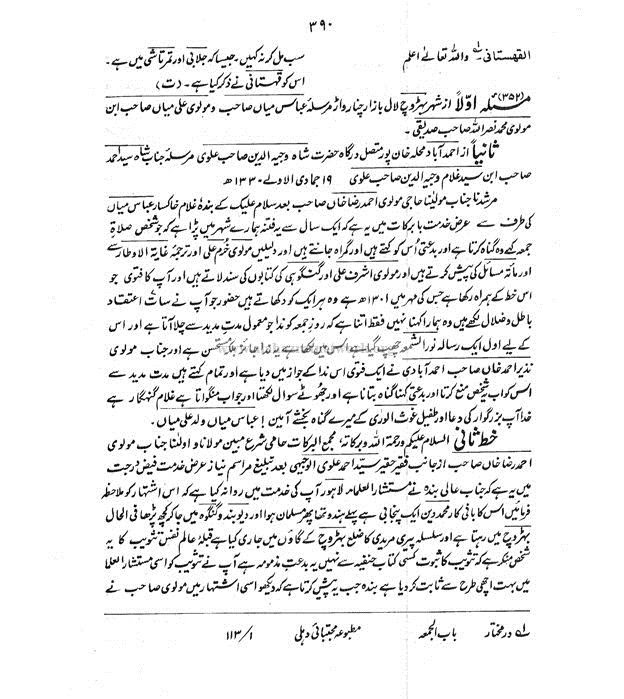 ۳۹۰
القهستانی ۱؎ واللہ تعالےٰ اعلم
سب مل کر نہ کہیں ۔ جیسا کہ جلابی اور تمرتاشی میں ہے ۔
اس کو قہستانی نے ذکر کیا ہے ۔ (ت)
مسئلہ (۳۵۲) اوّلاً از شہر بہڑوچ لال بازار چنار واڑ مرسلہ عباس میاں صاحب و مولوی علی میاں صاحب ابن
مولوی محمد نصر اللہ صاحب صدیقی ۔
ثانیاً از احمد آباد محلہ خان پور متصل درگاہ حضرت شاہ وجیہ الدین صاحب علوی مرسلہ جناب شاہ سید احمد
صاحب ابن سید غلام وجیہ الدین صاحب علوی ۱۹ جمادی الاولےٰ ۱۳۳۰ھ
مرشدنا جناب مولٰینا حاجی مولوی احمد رضا خاں صاحب بعد سلام علیک کے بندۂ غلام خاکسار عباس میاں
کی طرف سے عرض خدمت بابرکات میں یہ ہے کہ ایک سال سے یہ فتنہ ہمارے شہر میں پڑا ہے کہ جو شخص صلاۃِ
جمعہ کہے وہ گناہ کرتا ہے اور بدعتی اُس کو کہتے ہیں اور گمراہ جانتے ہیں اور دلیلیں مولوی خرم علی اور ترجمۂ غایۃ الاوطار سے
اور مائۃ مسائل کی پیش کرتے ہیں اور مولوی اشرف علی اور گنگوہی کی کتابوں کی سند لاتے ہیں اور آپ کا فتوٰی جو
اس خط کے ہمراہ رکھا ہے جس کی مہر میں ۱۳۰۱ھ ہے وہ ہر ایک کو دکھاتے ہیں حضور جو آپ نے سات اعتقاد
باطل و ضلال لکھے ہیں وہ ہمارا کہنا نہیں فقط اتنا ہے کہ روزِ جمعہ کو ندا جو معمول مدتِ مدید سے چلا آتا ہے اور اس
کے لیے اول ایک رسالہ نور الشمعہ چھپ گیا ہے اس میں لکھا ہے یہ ندا جائز بلکہ مستحسن ہے اور جناب مولوی
نذیر احمد خاں صاحب احمد آبادی نے ایک فتوٰی اس ندا کے جواز میں دیا ہے اور تمام کہتے ہیں مدت مدید سے
اس کو اب یہ شخص منع کرتا اور بدعتی کہنا گناہ بتاتا ہے اور جھوٹے سوال لکھتا اور جواب منگواتا ہے غلام گنہگار ہے
خدا آپ بزرگوار کی دعا اور طفیل غوث الورٰی کے میرے گناہ بخشے آمین ! عباس میاں ولد علی میاں ۔
خط ثانی السلام علیکم ورحمۃ اللہ وبرکاتہ، مجمع البرکات حامی شرع مبین مولانا و اولٰنا جناب مولوی
احمد رضا خاں صاحب از جانب فقیر حقیر سید احمد علوی الوجیہی بعد تبلیغ مراسم نیاز عرض خدمت فیض درجت
میں یہ ہے کہ جناب عالی بندہ نے مستشار العلماء لاہور آپ کی خدمت میں روانہ کیا ہے کہ اس اشتہار کو ملاحظہ
فرمائیں اس کا بانی کار محمد دین ایک پنجابی ہے پہلے ہندو تھا پھر مسلمان ہوا اور دیوبند و گنگوہ میں جا کر کچھ پڑھا فی الحال
بہڑوچ میں رہتا ہے اور سلسلہ پیری مریدی کا ضلع بہڑوچ کے گاؤں میں جاری کیا ہے قبلۂ عالم نفس تثویب کا یہ
شخص منکر ہے کہ تثویب کا ثبوت کسی کتاب حنفیہ سے نہیں یہ بدعتِ مذمومہ ہے آپ نے تثویب کو اسی مستشار العلما
میں بہت اچھی طرح سے ثابت کر دیا ہے بندہ جب یہ پیش کرتا ہے کہ دیکھو اسی اشتہار میں مولوی صاحب نے
۱؎ درمختار باب الجمعہ مطبوعہ مجتبائی دہلی ۱/ ۱۱۳